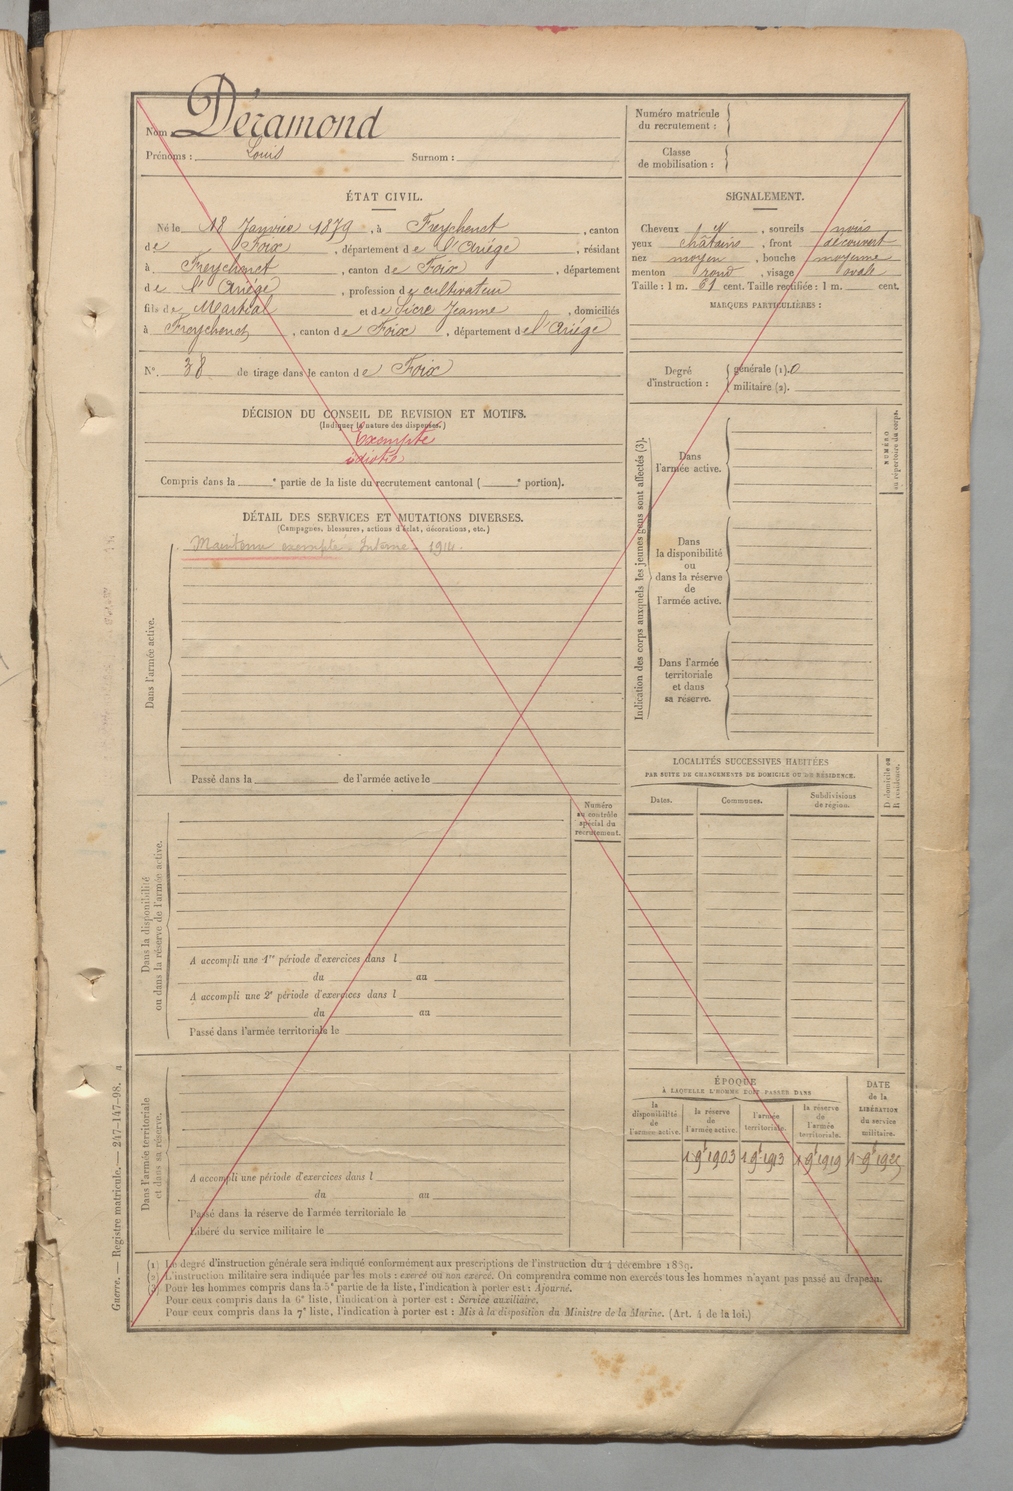 Nom Déramond
Prénoms : Louis Surnom :
Numéro matricule
du recrutement :
Classe
de mobilisation :
ÉTAT CIVIL.
Né le 18 Janvier 1879, à Freychenet, canton
de Foix, département de l'Ariége, résidant
à Freychenet, canton de Foix, département
de l'Ariége, profession de cultivateur
fils de Martial et de Sicre Jeanne, domiciliés
à Freychenet, canton de Foix, département de l'Ariége
N°. 38 de tirage dans le canton de Foix
SIGNALEMENT.
Cheveux , sourcils
yeux châtains, front découvert
nez moyen, bouche moyenne
menton rond, visage ovale
Taille : 1 m. 61 cent. Taille rectifiée : 1 m. cent.
MARQUES PARTICULIÈRES :
Degré
d'instruction :
générale (1). 0
militaire (2).
DÉCISION DU CONSEIL DE REVISION ET MOTIFS.
(Indiquer la nature des dispenses.)
Exempté
idiotie
Compris dans la e partie de la liste du recrutement cantonal ( e portion).
DÉTAIL DES SERVICES ET MUTATIONS DIVERSES.
(Campagnes, blessures, actions d'éclat, décorations, etc.)
Maintenu exempté Interne 1914.
Dans l'armée active.
Passé dans la de l'armée active le
Indication des corps auxquels les jeunes gens sont affectés (3).
Dans
l'armée active.
Dans
la disponibilité
ou
dans la réserve
de
l'armée active.
Dans l'armée
territoriale
et dans
sa réserve.
NUMÉRO
au répertoire du corps.
LOCALITÉS SUCCESSIVES HABITÉES
PAR SUITE DE CHANGEMENTS DE DOMICILE OU DE RÉSIDENCE.
Dates.
Communes.
Subdivisions
de région.
D domicile ou
R résidence.
Numéro
au contrôle
spécial du
recrutement.
Dans la disponibilité
ou dans la réserve de l'armée active.
A accompli une 1re période d'exercices dans l
du au
A accompli une 2e période d'exercices dans l
du au
Passé dans l'armée territoriale le
Dans l'armée territoriale
et dans sa réserve.
A accompli une période d'exercices dans l
du au
Passé dans la réserve de l'armée territoriale le
Libéré du service militaire le
ÉPOQUE
À LAQUELLE L'HOMME DOIT PASSER DANS
la
disponibilité
de
l'armée active.
la réserve
de
l'armée active.
l'armée
territoriale.
la réserve
de
l'armée
territoriale.
DATE
de la
LIBÉRATION
du service
militaire.
1 9bre 1903 1 9bre 1913 1 9bre 1919 1 9bre 1925
(1) Le degré d'instruction générale sera indiqué conformément aux prescriptions de l'instruction du 4 décembre 1889.
(2) L'instruction militaire sera indiquée par les mots : exercé ou non exercé. On comprendra comme non exercés tous les hommes n'ayant pas passé au drapeau.
(3) Pour les hommes compris dans la 5e partie de la liste, l'indication à porter est : Ajourné.
Pour ceux compris dans la 6e liste, l'indication à porter est : Service auxiliaire.
Pour ceux compris dans la 7e liste, l'indication à porter est : Mis à la disposition du Ministre de la Marine. (Art. 4 de la loi.)
Guerre. — Registre matricule. — 247-147-98.